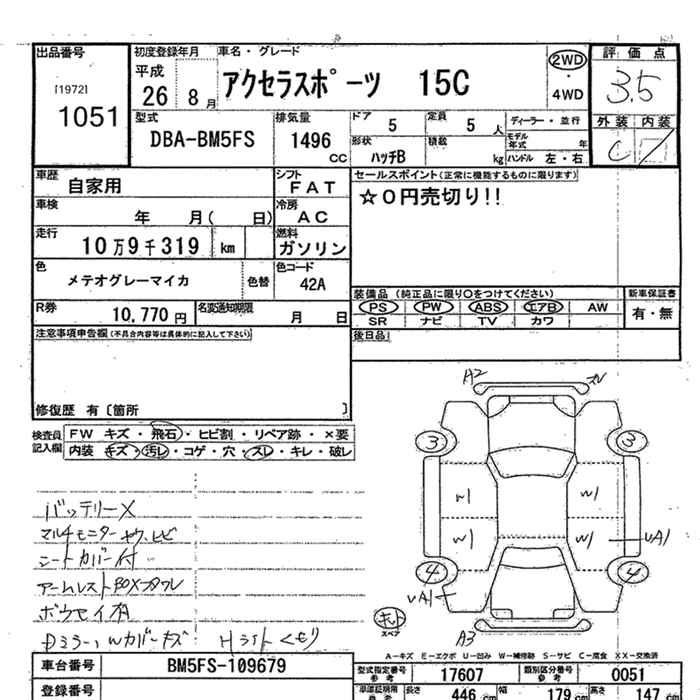 出品番号
[1972]
1051
初度登録年月
平成
26 8 月
車名・グレード
アクセラスポーツ 15C
2WD
・
4WD
評価点
3.5
外装 内装
C
型式
DBA-BM5FS
排気量
1496
CC
ドア 5
定員 5 人
ディーラー・並行
モデル年式 年
形状
ハッチB
積載 kg
ハンドル 左・右
車歴 自家用
シフト
FAT
車検 年 月( 日)
冷房
AC
走行 10万9千319 km
燃料
ガソリン
色 メテオグレーマイカ 色替
色コード
42A
R券 10,770 円
名変通知期限 月 日
セールスポイント(正常に機能するものに限ります)
☆0円売切り!!
装備品 (純正品に限り○をつけてください)
PS PW ABS エアB AW
SR ナビ TV カワ
新車保証書
有・無
後日品
注意事項申告欄(不具合内容等は具体的に記入して下さい)
修復歴 有〔箇所 〕
検査員記入欄
FW キズ・飛石・ヒビ割・リペア跡・×要
内装 キズ・汚レ・コゲ・穴・スレ・キレ・破レ
バッテリーX
マルチモニター
シートカバー付
ボウセイ有
A2
3 3
W1 W1
W1 W1 UA1
4 4
UA1
A3
スペア
A-キズ E-エクボ U-凹み W-補修跡 S-サビ C-腐食 XX-交換済
車台番号 BM5FS-109679
登録番号
型式指定番号 参考 17607
類別区分番号 参考 0051
車庫証明用 参考
長さ 446 cm
幅 179 cm
高さ 147 cm